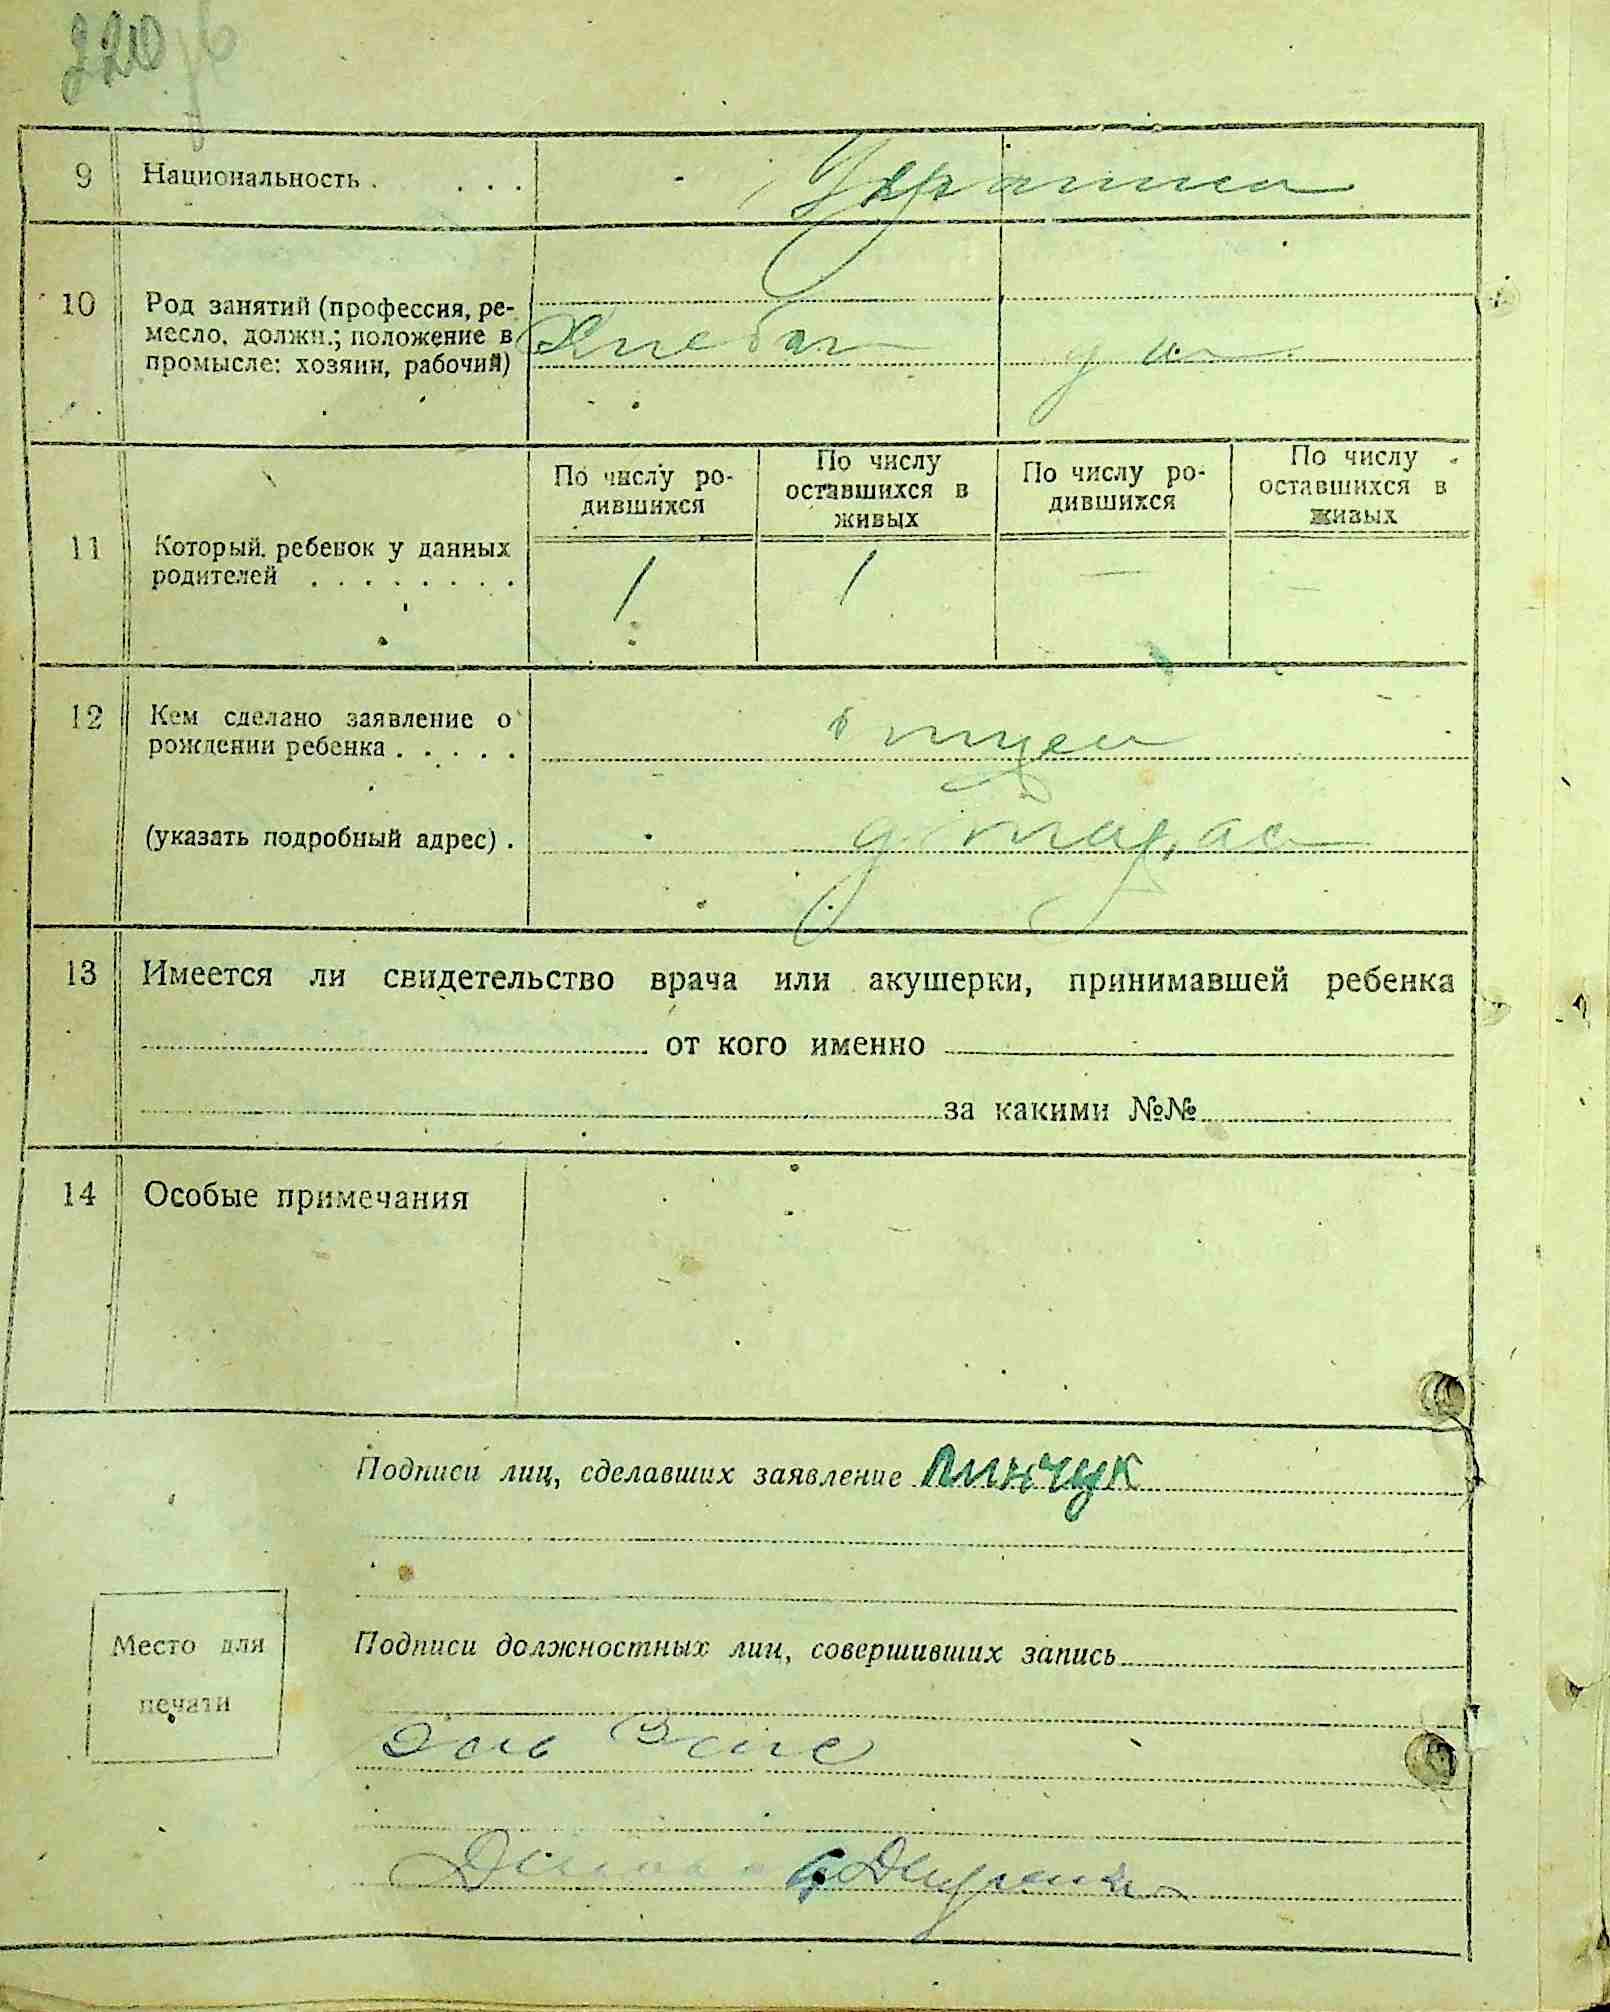 220
9 Национальность . . . .
Украинка
10 Род занятий (профессия, ре-
месло, должн.; положение в
промысле: хозяин, рабочий)
Хлебап
11 Который ребенок у данных
родителей . . . . . . . .
По числу ро-
дившихся
По числу
оставшихся в
живых
По числу ро-
дившихся
По числу
оставшихся в
живых
1 1 — —
12 Кем сделано заявление о
рождении ребенка . . . . .
отцем
(указать подробный адрес) .
13 Имеется ли свидетельство врача или акушерки, принимавшей ребенка
от кого именно
за какими №№
14 Особые примечания
Подписи лиц, сделавших заявление Пинчук
Место для
печати
Подписи должностных лиц, совершивших запись